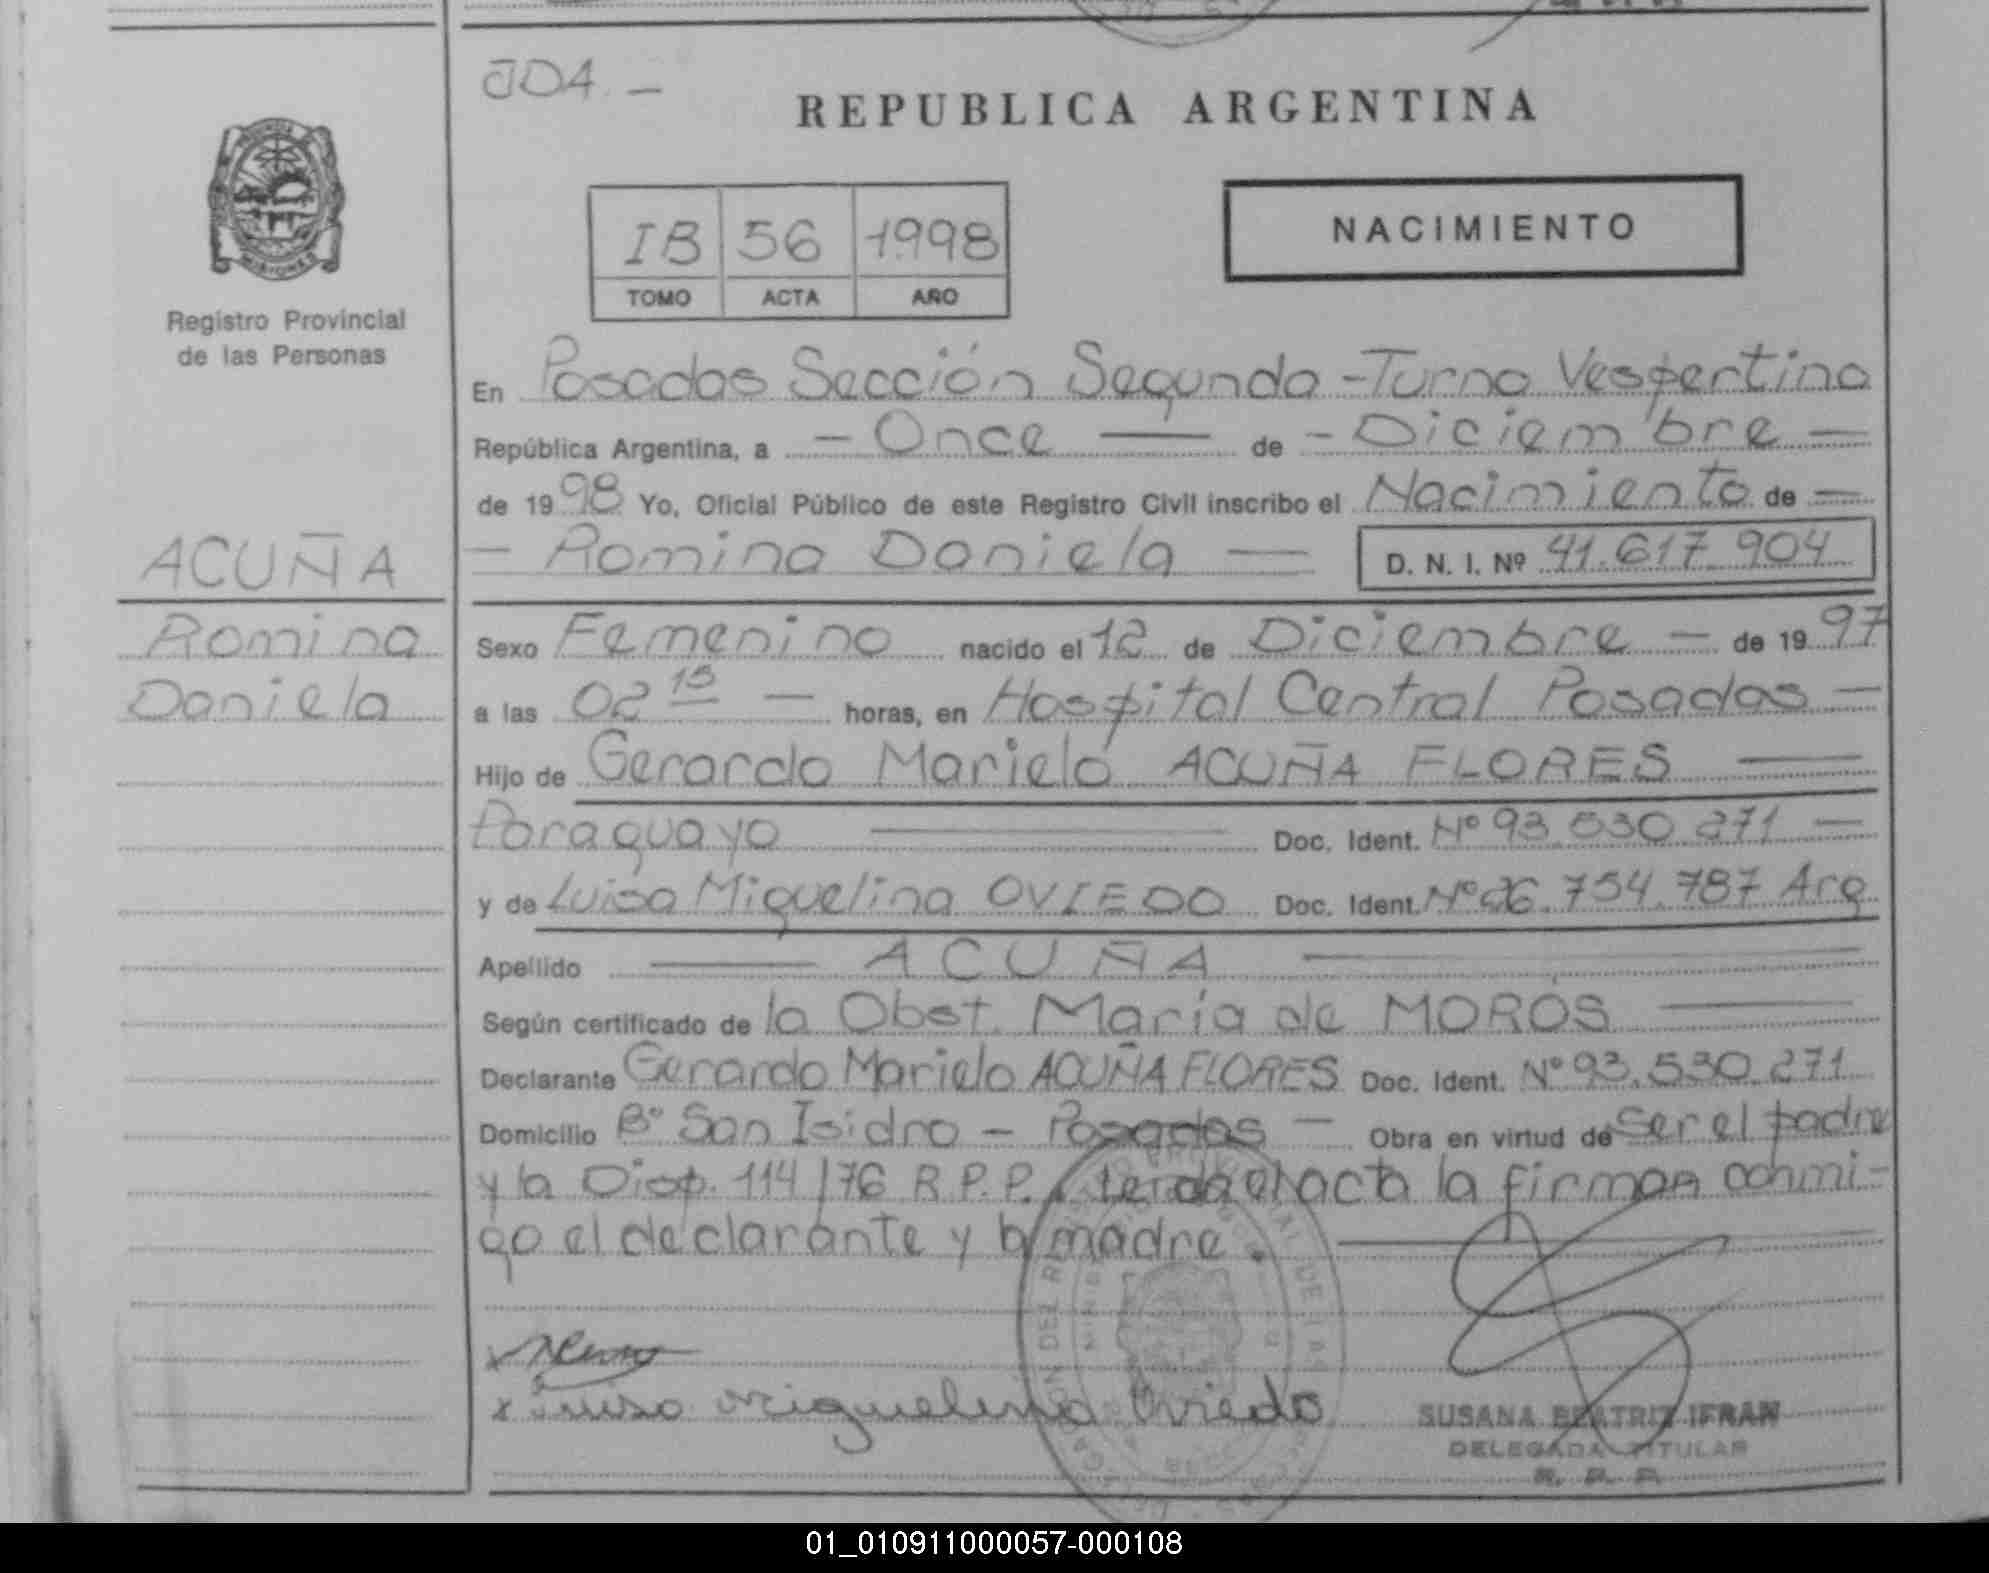 JD4. -
REPUBLICA ARGENTINA
IB 56 1998
TOMO ACTA AÑO
NACIMIENTO
MISIONES
Registro Provincial
de las Personas
En Posadas Sección Segunda - Turno Vespertino
República Argentina, a - Once — de - Diciembre —
de 1998 Yo, Oficial Público de este Registro Civil inscribo el Nacimiento de —
— Romina Daniela — D. N. I. Nº 41.617.904
ACUÑA
Romina
Daniela
Sexo Femenino nacido el 12 de Diciembre — de 1997
a las 02 15 — horas, en Hospital Central Posadas —
Hijo de Gerardo Marielo ACUÑA FLORES —
Paraguayo — Doc. Ident. Nº 93.530.271 —
y de Luisa Miguelina OVIEDO Doc. Ident. Nº 26.754.787 Arg
Apellido — ACUÑA —
Según certificado de la Obst. María de MORÓS —
Declarante Gerardo Marielo ACUÑA FLORES Doc. Ident. Nº 93.530.271
Domicilio Bº San Isidro - Posadas — Obra en virtud de ser el padre
y la Disp. 114/76 R.P.P. el acta la firman conmi-
go el declarante y la madre. —
x Luisa Miguelina Oviedo
SUSANA BEATRIZ IFRAN
DELEGADA TITULAR
R. P. P.
01_010911000057-000108